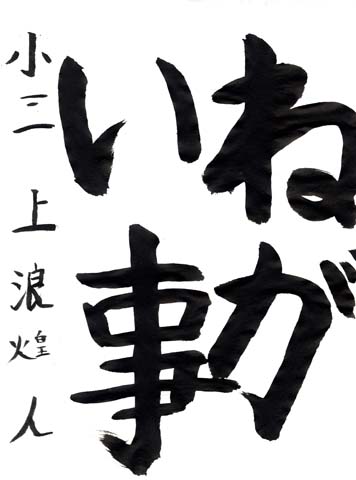 ねが
い事
小三 上浪煌人